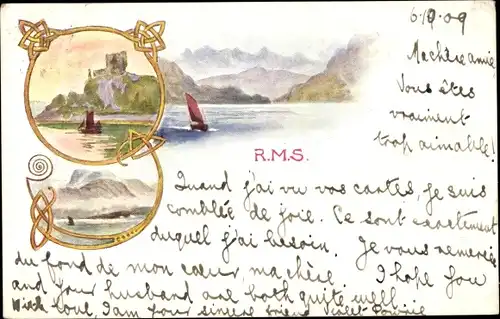 6.10.09
Ma chère amie
Vous êtes
vraiment
trop aimable!
R.M.S.
Quand j'ai vu vos cartes, je suis
comblée de joie. Ce sont exactement
duquel j'ai besoin. Je vous remercie
du fond de mon cœur, ma chère. I hope you
and your husband are both quite well.
With love, I am your sincere friend Violet